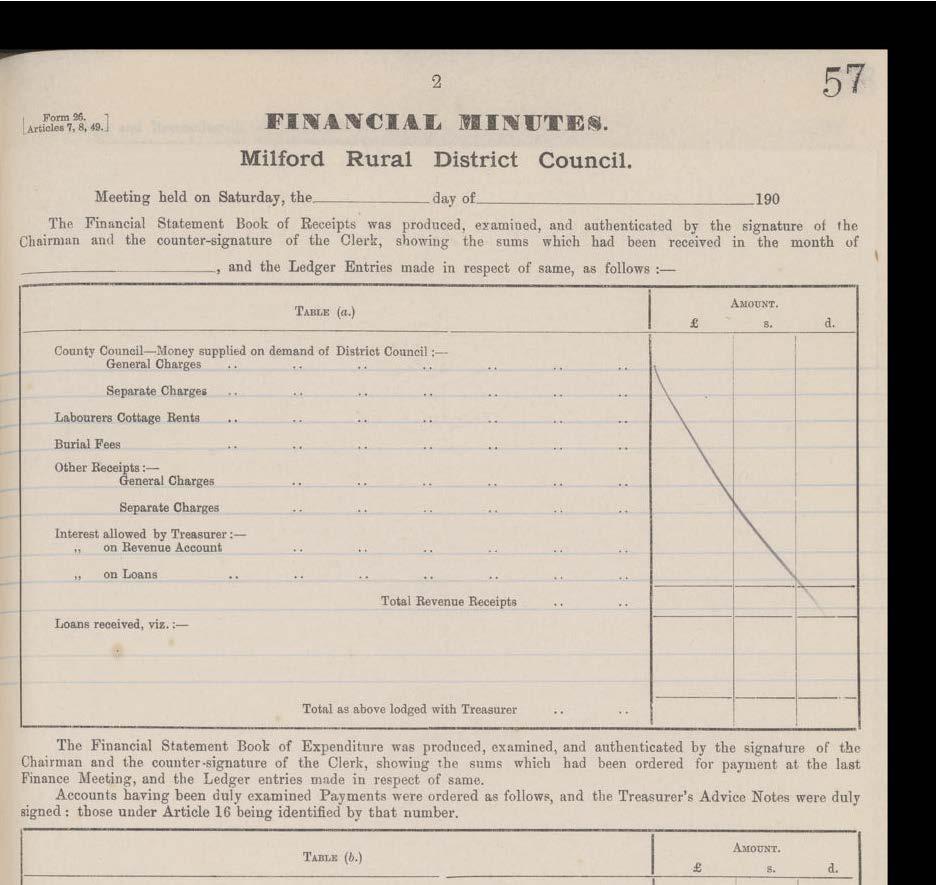 2
57
Form 26.
Articles 7, 8, 49.
FINANCIAL MINUTES.
Milford Rural District Council.
Meeting held on Saturday, the day of 190
The Financial Statement Book of Receipts was produced, examined, and authenticated by the signature of the
Chairman and the counter-signature of the Clerk, showing the sums which had been received in the month of
, and the Ledger Entries made in respect of same, as follows :—
TABLE (a.)
AMOUNT.
£ s. d.
County Council—Money supplied on demand of District Council :—
General Charges .. .. .. .. .. .. ..
Separate Charges .. .. .. .. .. .. ..
Labourers Cottage Rents .. .. .. .. .. .. ..
Burial Fees .. .. .. .. .. .. ..
Other Receipts :—
General Charges .. .. .. .. .. ..
Separate Charges .. .. .. .. .. ..
Interest allowed by Treasurer :—
„ on Revenue Account .. .. .. .. .. ..
„ on Loans .. .. .. .. .. .. ..
Total Revenue Receipts .. ..
Loans received, viz. :—
Total as above lodged with Treasurer .. ..
The Financial Statement Book of Expenditure was produced, examined, and authenticated by the signature of the
Chairman and the counter-signature of the Clerk, showing the sums which had been ordered for payment at the last
Finance Meeting, and the Ledger entries made in respect of same.
Accounts having been duly examined Payments were ordered as follows, and the Treasurer's Advice Notes were duly
signed : those under Article 16 being identified by that number.
TABLE (b.)
AMOUNT.
£ s. d.